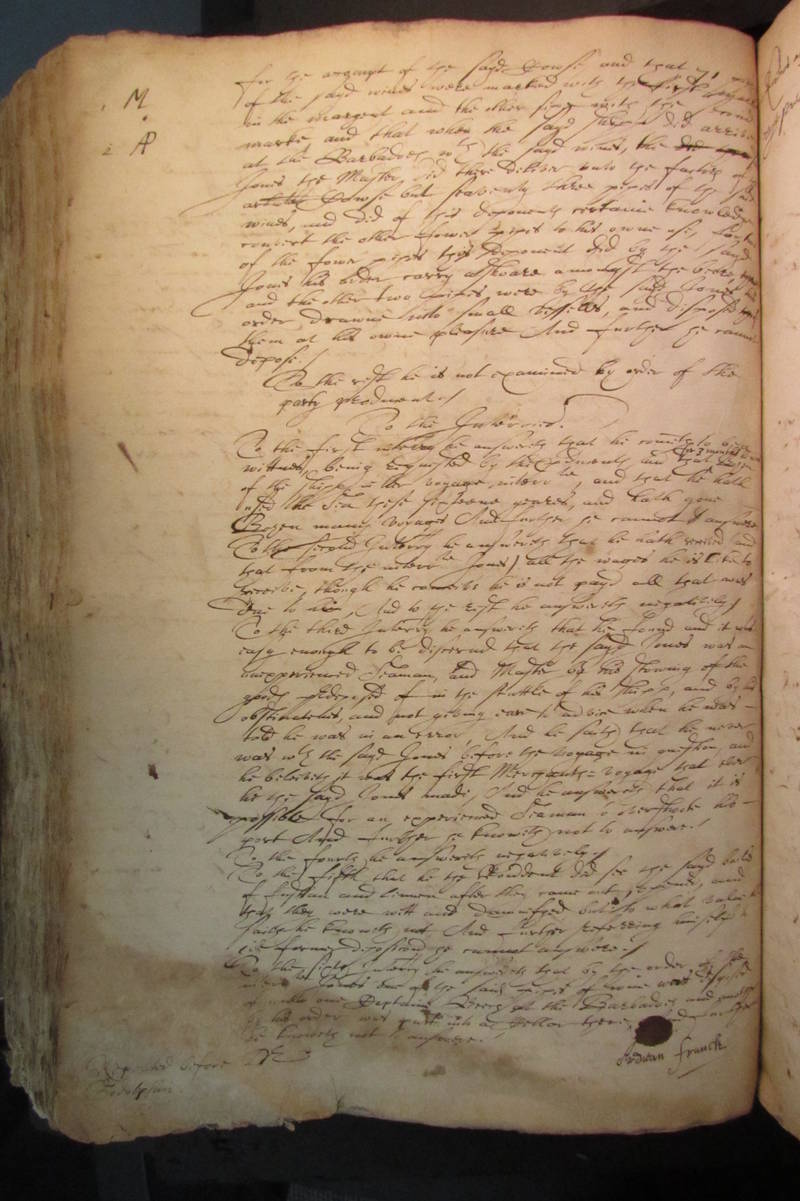 1 M
2 AP
for the accompt of the sayd Dowse and that
of the sayd wines were marked with the first
in the margent and the other five with the second
marke, and that when the sayd shipp did arrive
at the Barbadoes with the sayd wines, the
Jones the Master did there deliver unto the factors of
Dowse but seaventy three pipes of the said
wines, and did of this deponents certaine knowledge
convert the other fower pipes to his owne use,
of the fower pipes this deponent did by the sayd
Jones his order carry ashoare amongst the beere,
and the other two pipes were by the sayd Jones his
order drawne into small vessells, and disposed
them at his owne pleasure And further he cannot
depose./
To the rest he is not examined by order of the
party producent./
To the Interries.
To the first Interry he answereth that he cometh to beare
wittnes, being required by the producents, and that hee
of the shipp the voyage, interr, and that he hath
used the Sea these yeares, and hath gone
dozen many voyages And further he cannot answere
To the second Interry he answereth that he hath received
that from the interr Jones all the wages he is like to
receive, though he conceiveth he is not payd all that was
due to him, And to the rest he answereth negatively./
To the third Interry he answereth that he found and it was
easy enough to be discerned that the sayd Jones was an
unexperienced Seaman, and Master by his stowing of the
goods predeposed of in the shipp, and by his
obstinatenes, and not giving eare to advice when he was
told he was in an error, And he saith that he never
was with the sayd Jones before the voyage in question, and
he beleiveth it was the first Merchants voyage that ever
he the sayd Jones made, And he answereth that it is
possible for an experienced Seaman to overshoote his
port And further he knoweth not to answere./
To the fourth he answereth negatively./
To the fifth that he the Rendent did see the sayd bales
of fustian and linnen after they came out and
that they were wett and damnifyed but to what value
saith he knoweth not And further referring himselfe to
his former deposition he cannot answere./
To the sixth Interry he answereth that by the order of the
interr Jones one of the said pipes of wine was
of unto one Captaine at the Barbadoes and
by his order was putt into a there, And further
he knoweth not to answere.
Repeated before
Godolphin.
Franck